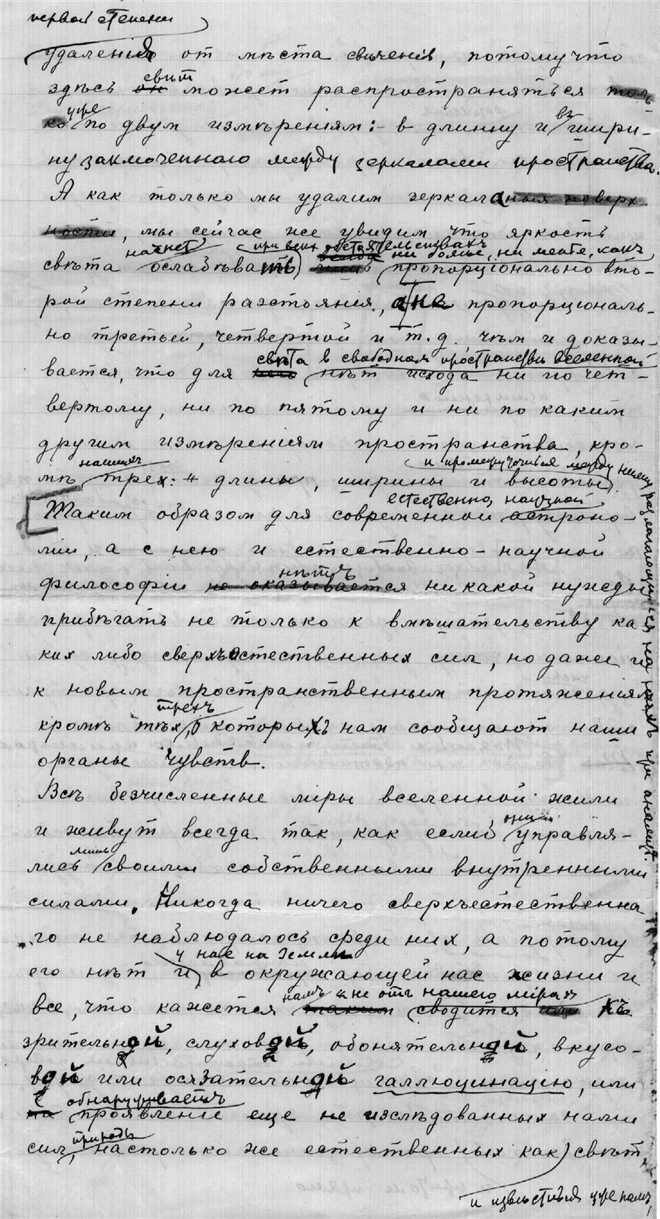 первой степени
удаленія от мѣста свеченія, потому что
здѣсь свѣт может распространяться
уже по двум измѣреніям: в длинну и в шири-
ну заключеннаго между зеркалами пространства.
А как только мы удалим зеркала
мы сейчас же увидим что яркость
начнет при всех обстоятельствах ни больше, ни менѣе, какъ
свѣта ослабѣвать пропорціонально вто-
рой степени разстоянія, а не пропорціональ-
но третьей, четвертой и т.д. чѣм и доказы-
свѣта в свободном пространствѣ вселенной
вается, что для нѣт исхода ни по чет-
вертому, ни по пятому и ни по каким
другим измѣреніям пространства, кро-
нашихъ и промежуточных между ними
мѣ трех: длины, ширины и высоты.
естественно научной
Таким образом для современной астроно-
міи, а с нею и естественно-научной
нѣтъ
философіи не оказывается никакой нужды
прибѣгать не только к вмѣшательству ка
ких либо сверхъестественных сил, но даже и
к новым пространственным протяженіям
трехъ
кромѣ тѣх, о которыхъ нам сообщают наши
органы чувств.
Всѣ безчисленные міры вселенной жили
они
и живут всегда так, как если б управля-
лишь
лись своими собственными внутренними
силами. Никогда ничего сверхъестественна
го не наблюдалось среди них, а потому
у нас на Земли
его нѣт и в окружающей нас жизни и
намъ не отъ нашего міра
все, что кажется таким сводится къ
зрительной, слуховой, обонятельной, вкусо-
вой или осязательной галлюцинацію, или
обнаруживаетъ
проявленіе еще не изслѣдованных нами
природы
сил, настолько же естественных как свѣт
и извѣстныя уже намъ,